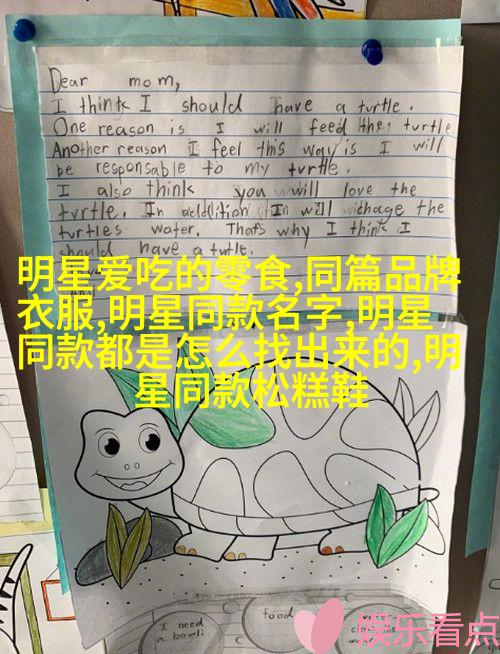 Dear mom,
I think I should have a turtle.
One reason is I will feed the turtle.
Another reason I feel this way is I will
be responsable to my turtle.
I also think you will love the
turtle. In addition I will chage the
turtles water. That's why I think I
should have a turtle.
明星爱吃的零食,同篇品牌
衣服,明星同款名字,明星
同款都是怎么找出来的,明
星同款松糕鞋
I need
a bowl
food
娱乐看点